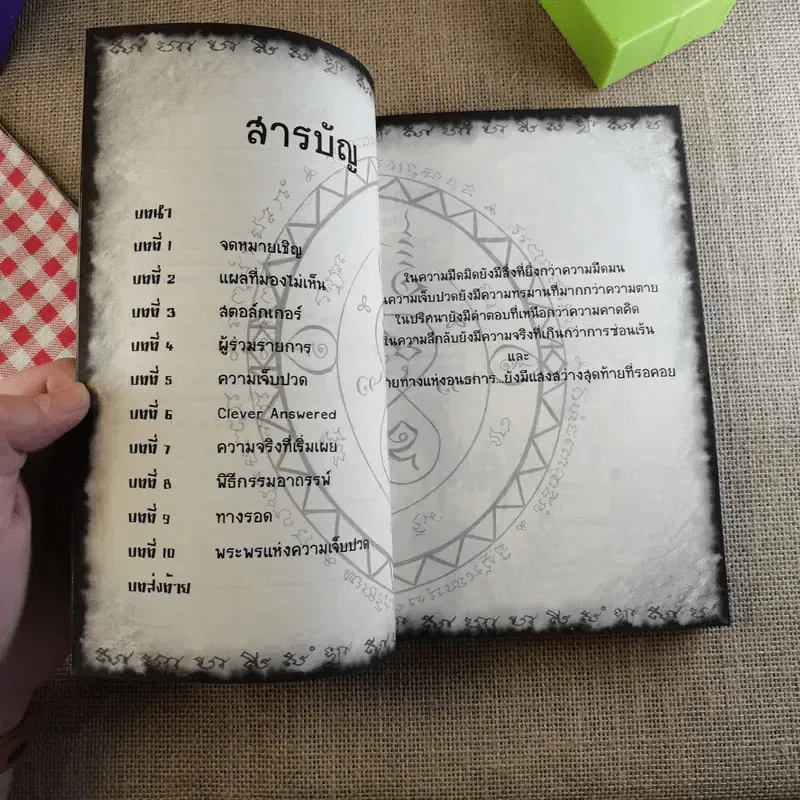 สารบัญ
บทนำ
บทที่ 1 จดหมายเชิญ
บทที่ 2 แผลที่มองไม่เห็น
บทที่ 3 สตอล์กเกอร์
บทที่ 4 ผู้ร่วมรายการ
บทที่ 5 ความเจ็บปวด
บทที่ 6 Clever Answered
บทที่ 7 ความจริงที่เริ่มเผย
บทที่ 8 พิธีกรรมอาถรรพ์
บทที่ 9 ทางรอด
บทที่ 10 พระพรแห่งความเจ็บปวด
บทส่งท้าย
ในความมืดมิดยังมีสิ่งที่ยิ่งกว่าความมืดมน
ความเจ็บปวดยังมีความทรมานที่มากกว่าความตาย
ในปริศนายังมีคำตอบที่เหนือกว่าความคาดคิด
ในความลึกลับยังมีความจริงที่เกินกว่าการซ่อนเร้น
และ
ทางแห่งอนธการ...ยังมีแสงสว่างสุดท้ายที่รอคอย